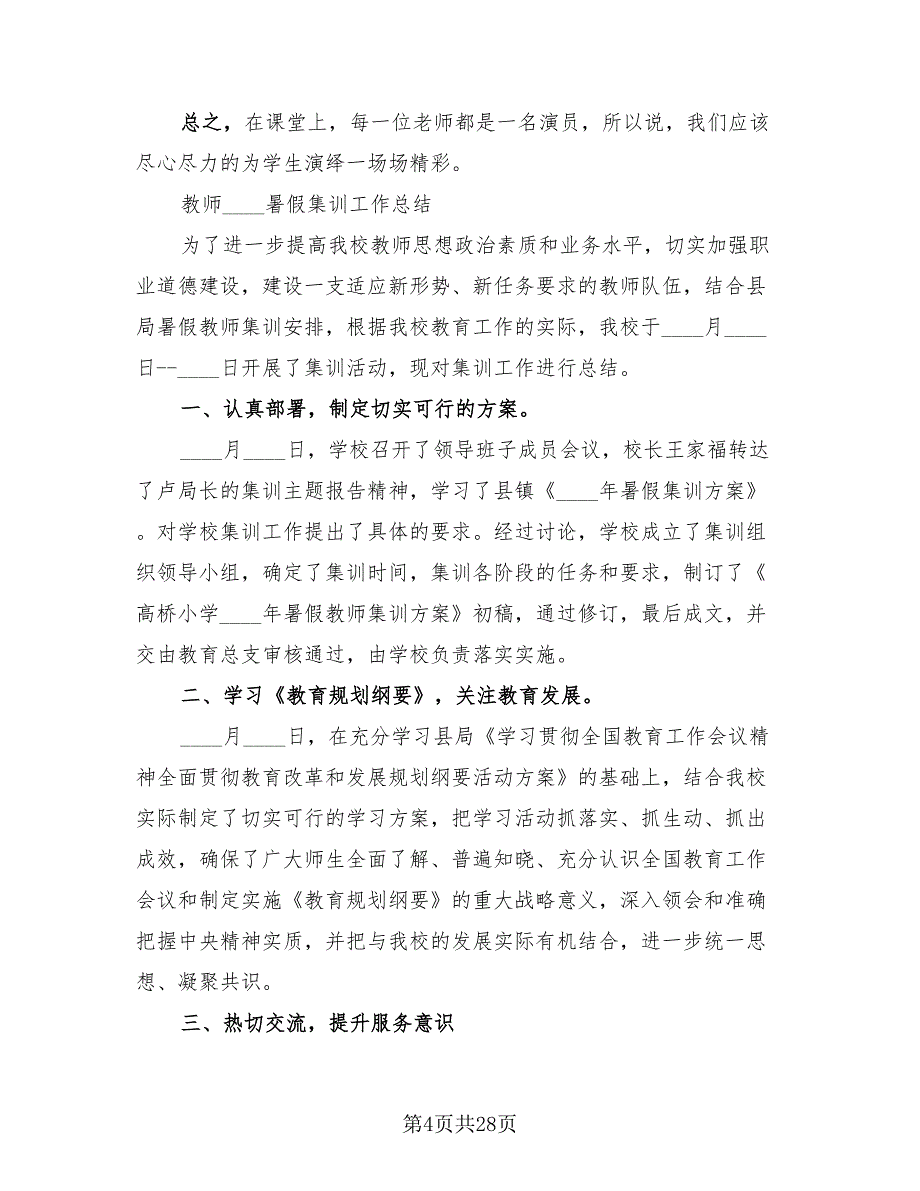 总之，在课堂上，每一位老师都是一名演员，所以说，我们应该
尽心尽力的为学生演绎一场场精彩。
教师____暑假集训工作总结
为了进一步提高我校教师思想政治素质和业务水平，切实加强职
业道德建设，建设一支适应新形势、新任务要求的教师队伍，结合县
局暑假教师集训安排，根据我校教育工作的实际，我校于____月____
日--____日开展了集训活动，现对集训工作进行总结。
一、认真部署，制定切实可行的方案。
____月____日，学校召开了领导班子成员会议，校长王家福转达
了卢局长的集训主题报告精神，学习了县镇《____年暑假集训方案》
。对学校集训工作提出了具体的要求。经过讨论，学校成立了集训组
织领导小组，确定了集训时间，集训各阶段的任务和要求，制订了《
高桥小学____年暑假教师集训方案》初稿，通过修订，最后成文，并
交由教育总支审核通过，由学校负责落实实施。
二、学习《教育规划纲要》，关注教育发展。
____月____日，在充分学习县局《学习贯彻全国教育工作会议精
神全面贯彻教育改革和发展规划纲要活动方案》的基础上，结合我校
实际制定了切实可行的学习方案，把学习活动抓落实、抓生动、抓出
成效，确保了广大师生全面了解、普遍知晓、充分认识全国教育工作
会议和制定实施《教育规划纲要》的重大战略意义，深入领会和准确
把握中央精神实质，并把与我校的发展实际有机结合，进一步统一思
想、凝聚共识。
三、热切交流，提升服务意识
第4页共28页